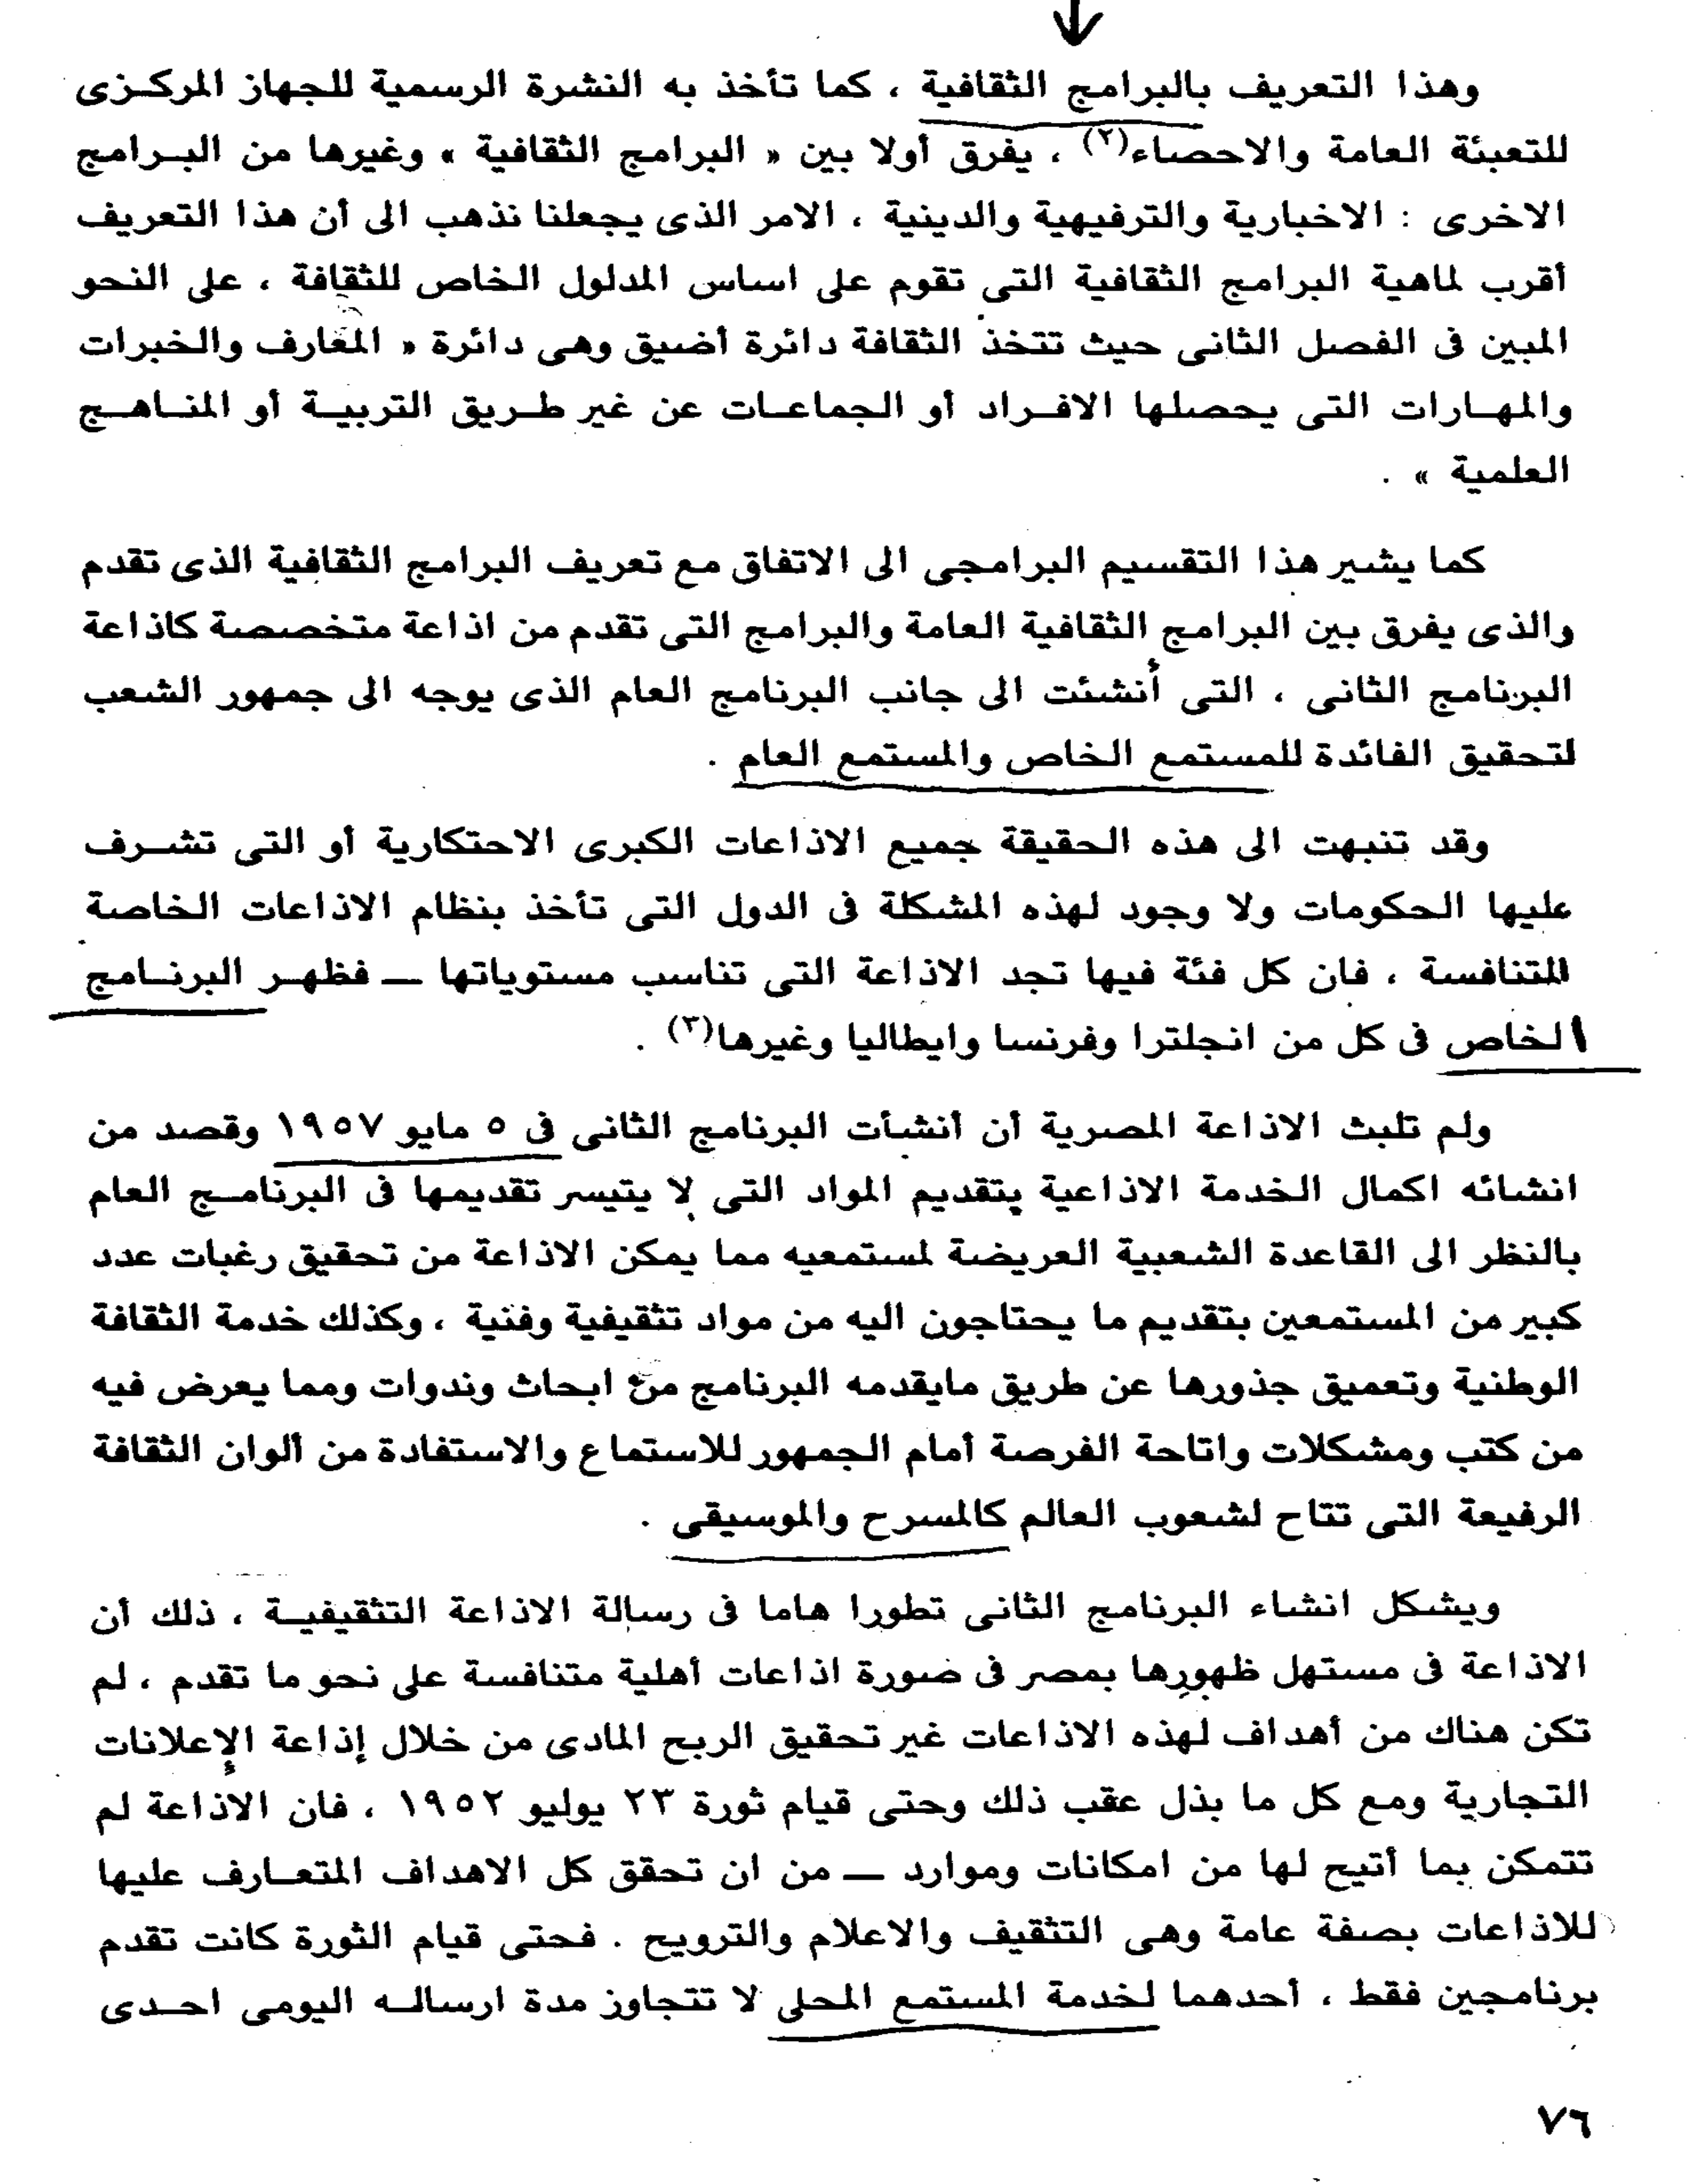 وهذا التعريف بالبرامج الثقافية ، كما تأخذ به النشرة الرسمية للجهاز المركزى
للتعبئة العامة والاحصاء(٢) ، يفرق أولا بين « البرامج الثقافية » وغيرها من البرامج
الاخرى : الاخبارية والترفيهية والدينية ، الامر الذى يجعلنا نذهب الى أن هذا التعريف
أقرب لماهية البرامج الثقافية التى تقوم على اساس المدلول الخاص للثقافة ، على النحو
المبين فى الفصل الثانى حيث تتخذ الثقافة دائرة أضيق وهى دائرة « المعارف والخبرات
والمهارات التى يحصلها الافراد أو الجماعات عن غير طريق التربية أو المناهج
العلمية » .
كما يشير هذا التقسيم البرامجى الى الاتفاق مع تعريف البرامج الثقافية الذى تقدم
والذى يفرق بين البرامج الثقافية العامة والبرامج التى تقدم من اذاعة متخصصة كاذاعة
البرنامج الثانى ، التى أنشئت الى جانب البرنامج العام الذى يوجه الى جمهور الشعب
لتحقيق الفائدة للمستمع الخاص والمستمع العام .
وقد تنبهت الى هذه الحقيقة جميع الاذاعات الكبرى الاحتكارية أو التى تشرف
عليها الحكومات ولا وجود لهذه المشكلة فى الدول التى تأخذ بنظام الاذاعات الخاصة
المتنافسة ، فان كل فئة فيها تجد الاذاعة التى تناسب مستوياتها — فظهر البرنامج
الخاص فى كل من انجلترا وفرنسا وايطاليا وغيرها(٣) .
ولم تلبث الاذاعة المصرية أن أنشأت البرنامج الثانى فى ٥ مايو ١٩٥٧ وقصد من
انشائه اكمال الخدمة الاذاعية بتقديم المواد التى لا يتيسر تقديمها فى البرنامج العام
بالنظر الى القاعدة الشعبية العريضة لمستمعيه مما يمكن الاذاعة من تحقيق رغبات عدد
كبير من المستمعين بتقديم ما يحتاجون اليه من مواد تثقيفية وفنية ، وكذلك خدمة الثقافة
الوطنية وتعميق جذورها عن طريق مايقدمه البرنامج من ابحاث وندوات ومما يعرض فيه
من كتب ومشكلات واتاحة الفرصة أمام الجمهور للاستماع والاستفادة من ألوان الثقافة
الرفيعة التى تتاح لشعوب العالم كالمسرح والموسيقى .
ويشكل انشاء البرنامج الثانى تطورا هاما فى رسالة الاذاعة التثقيفية ، ذلك أن
الاذاعة فى مستهل ظهورها بمصر فى صورة اذاعات أهلية متنافسة على نحو ما تقدم ، لم
تكن هناك من أهداف لهذه الاذاعات غير تحقيق الربح المادى من خلال إذاعة الإعلانات
التجارية ومع كل ما بذل عقب ذلك وحتى قيام ثورة ٢٣ يوليو ١٩٥٢ ، فان الاذاعة لم
تتمكن بما أتيح لها من امكانات وموارد — من ان تحقق كل الاهداف المتعارف عليها
للاذاعات بصفة عامة وهى التثقيف والاعلام والترويح . فحتى قيام الثورة كانت تقدم
برنامجين فقط ، أحدهما لخدمة المستمع المحلى لا تتجاوز مدة ارساله اليومى احدى
٧٦